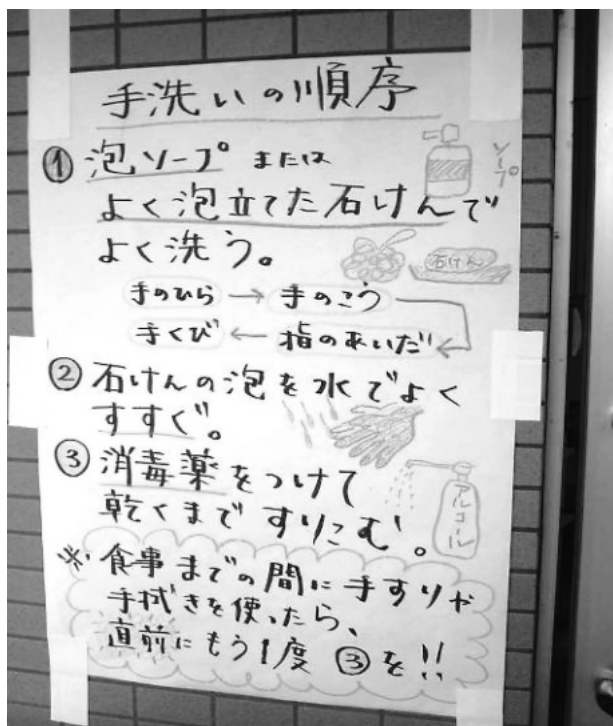 手洗いの順序
① 泡ソープ または
ソープ
よく泡立てた石けんで
よく洗う。
石けん
手のひら → 手のこう
手くび ← 指のあいだ
② 石けんの泡を水でよく
すすぐ。
③ 消毒薬をつけて
乾くまですりこむ。
アルコール
※食事までの間に手すりや
手拭きを使ったら、
直前にもう1度 ③を!!